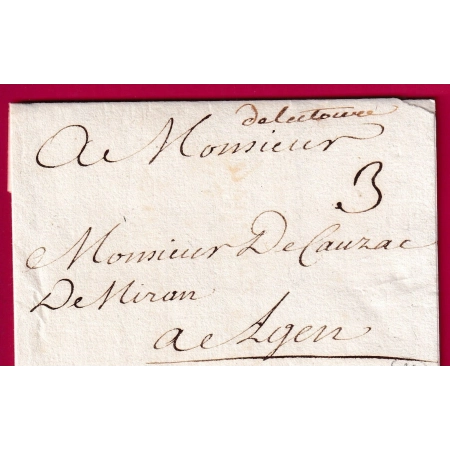 delectoure
A Monsieur
3
Monsieur De Cauzac
De Niran
a Agen